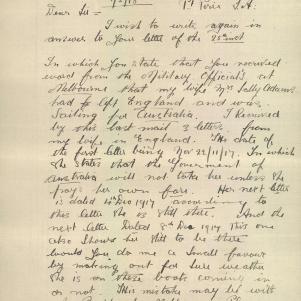 Dear Sir
I wish to write again in
answer to your letter of the 25 inst
In which you state that you received
word from the Military Officials at
Melbourne that my wife Mrs Sally Adams
had left England and was
Sailing for Australia. I received
by this last mail 3 letters from
my wife in England. The date of
the first letter being Nov 22/11/17. In which
she states that the Government of
Australia will not take her unless she
pays her own fare. Her next letter
is dated 4 Dec 1917 according to
this letter she is still there. And the
next letter Dated 8th Dec 1917 This one
also shows her still to be there
would you do me a small favour
by making out for sure weather
she is on these boats coming in
or not. This mistake may be with